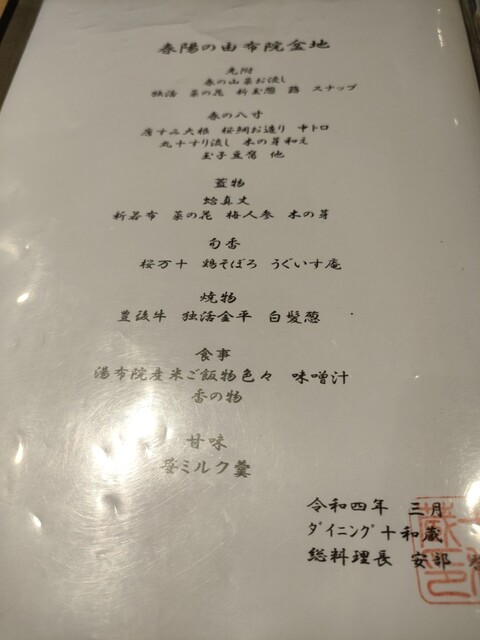 春陽の由布院盆地
先附
春の山菜お浸し
独活 菜の花 新玉葱 蕗 スナップ
春の八寸
唐すみ大根 桜鯛お造り 中トロ
丸十すり流し 木の芽和え
玉子豆腐 他
蓋物
蛤真丈
新若布 菜の花 梅人参 木の芽
旬香
桜万十 鶏そぼろ うぐいす庵
焼物
豊後牛 独活金平 白髪葱
食事
湯布院産米ご飯物色々 味噌汁
香の物
甘味
苺ミルク羹
令和四年 三月
ダイニング十和蔵
総料理長 安部